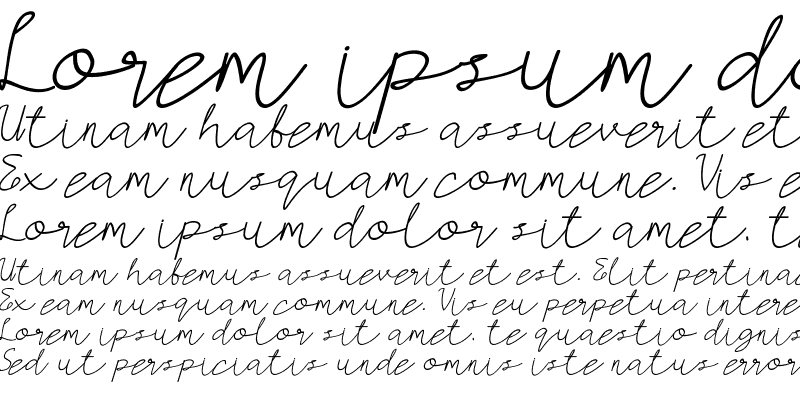 Lorem ipsum do
Utinam habemus assueverit et
Ex eam nusquam commune. Vis e
Lorem ipsum dolor sit amet, t
Utinam habemus assueverit et est. Elit pertina
Ex eam nusquam commune. Vis eu perpetua intere
Lorem ipsum dolor sit amet, te quaestio dignis
Sed ut perspiciatis unde omnis iste natus error